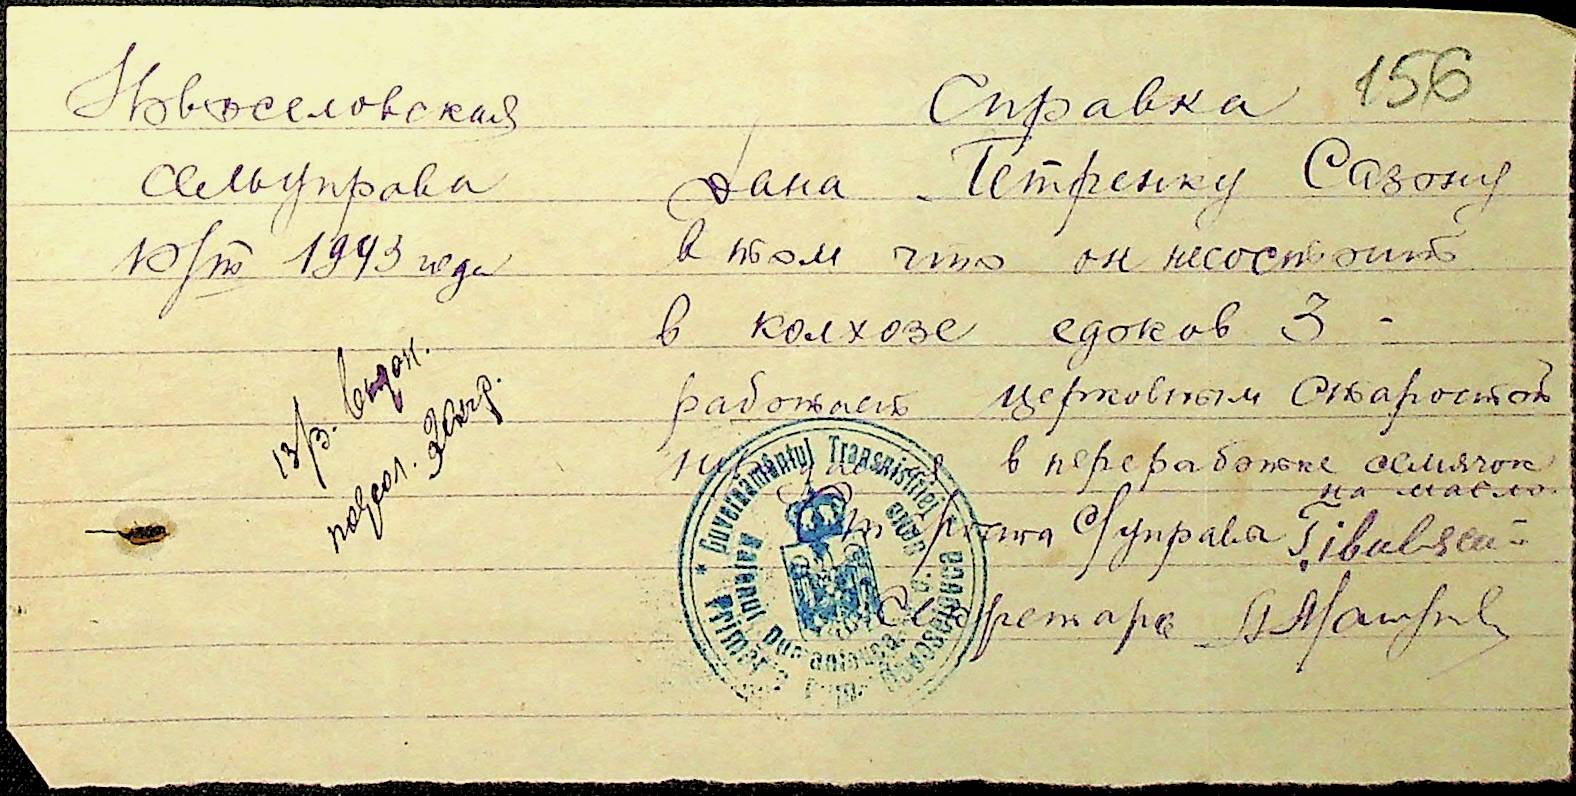 156
Новоселовская
сельуправа
10/III 1943 года
Справка
дана Петренку Сазону
в том что он несостоит
в колхозе едоков 3 -
работает церковным старостой
в переработке семячок
на масло.
С/управа
Секретарь
13/3. выдан.
подсол.
Guvernamântul Transnistriei
Raionul
Primăria